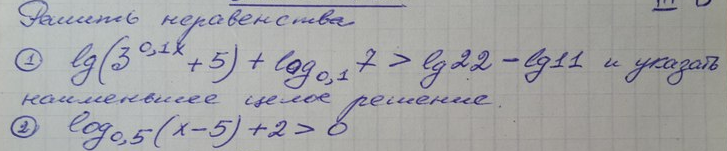 Решить неравенства
① lg(3^0,1x + 5) + log_0,1 7 > lg22 - lg11 и указать
наименьшее целое решение.
② log_0,5 (x-5) + 2 > 0